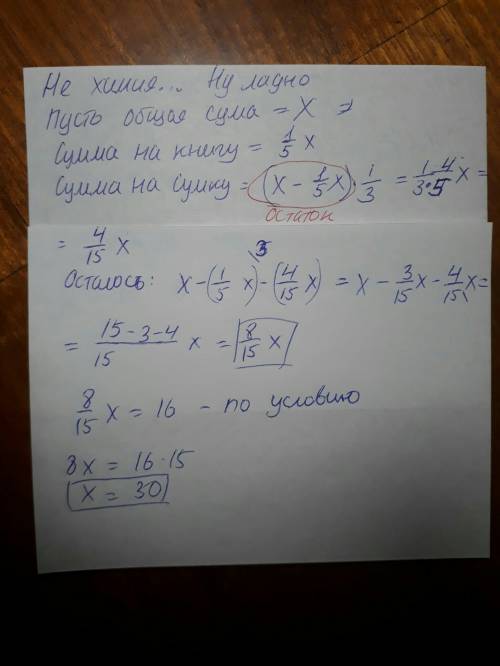 Не химия... Ну ладно
Пусть общая сума = X =
Сумма на книгу = 1/5 x
Сумма на сумку = (X - 1/5 X) · 1/3 = 1·4/3·5 x =
остаток
= 4/15 x
3
Осталось: x - (1/5 x) - (4/15 x) = x - 3/15 x - 4/15 x =
= 15-3-4/15 x = 8/15 x
8/15 x = 16 - по условию
8x = 16·15
x = 30